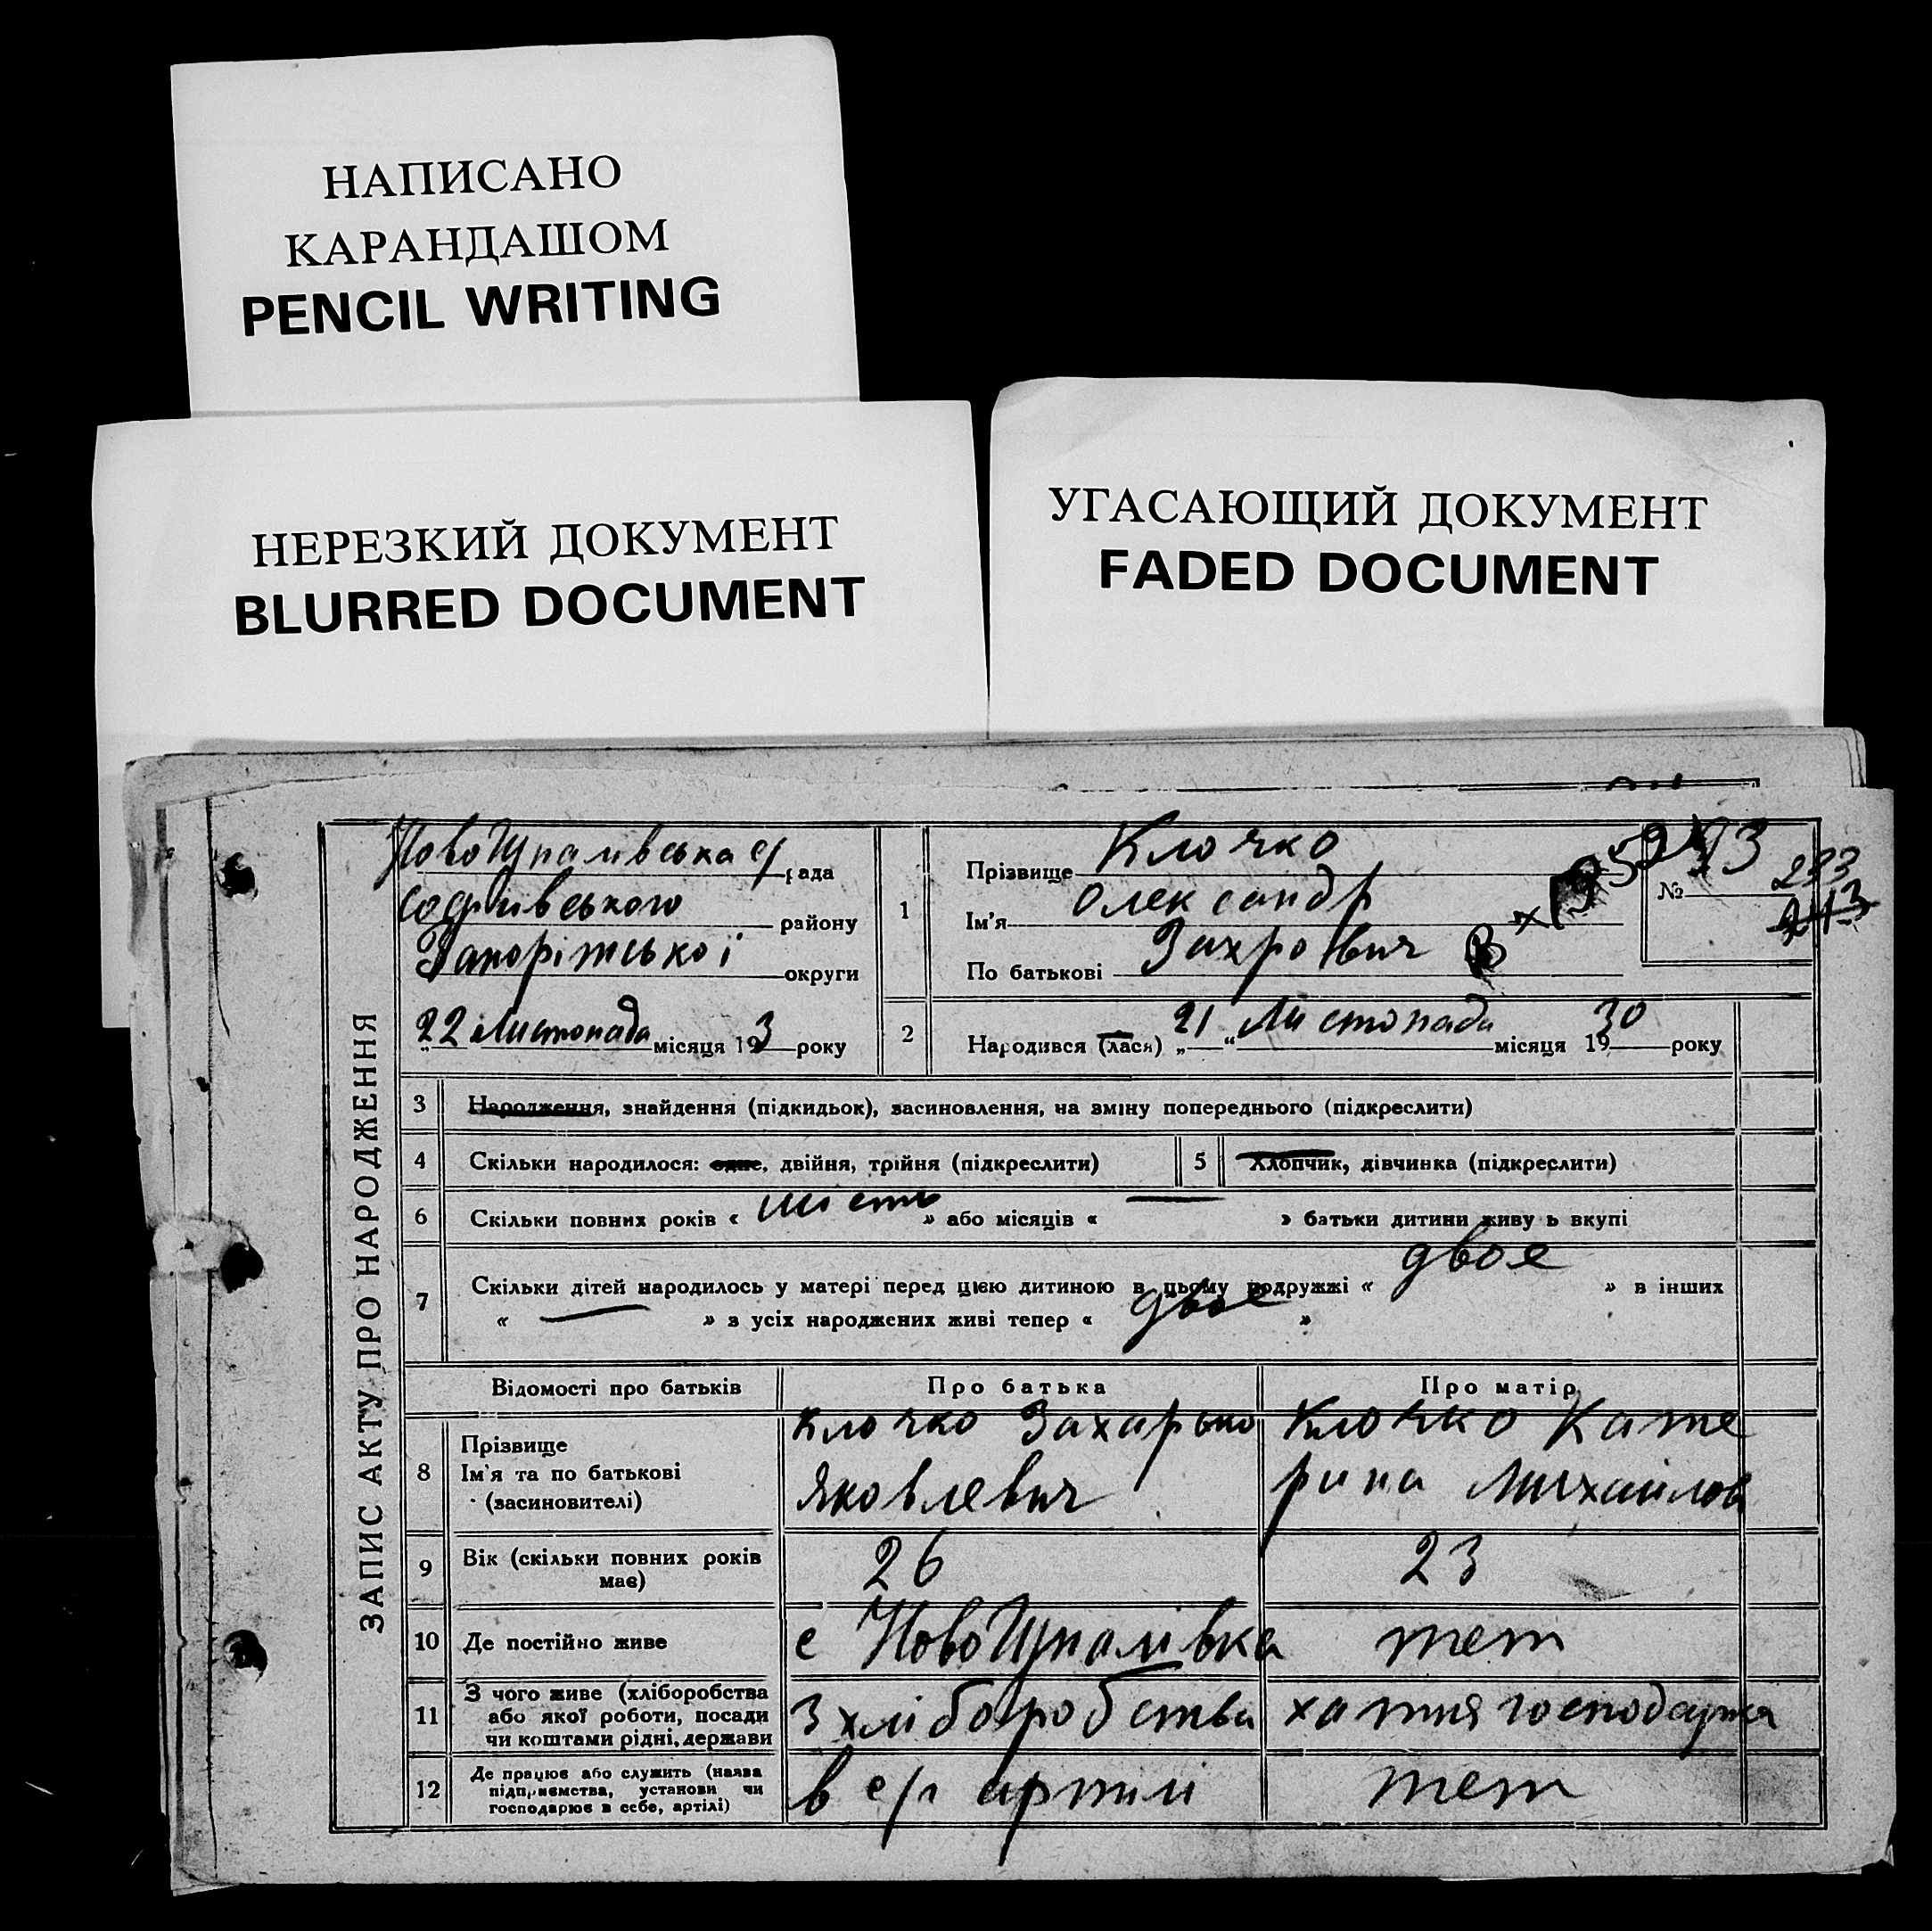 НАПИСАНО
КАРАНДАШОМ
PENCIL WRITING
НЕРЕЗКИЙ ДОКУМЕНТ
BLURRED DOCUMENT
УГАСАЮЩИЙ ДОКУМЕНТ
FADED DOCUMENT
ЗАПИС АКТУ ПРО НАРОДЖЕННЯ
рада
району
Запоріжської округи
22 Листопада місяця 193 року
1
Прізвище Клочко
Ім'я Олександр
По батькові
№
233
2
Народився (лася) „21“ Листопада місяця 1930 року
3 Народження, знайдення (підкидьок), засиновлення, на зміну попереднього (підкреслити)
4 Скільки народилося: одне, двійня, трійня (підкреслити)
5 Хлопчик, дівчинка (підкреслити)
6 Скільки повних років « шість » або місяців « — » батьки дитини живу ь вкупі
7 Скільки дітей народилось у матері перед цією дитиною в цьому подружжі « двоє » в інших
« — » з усіх народжених живі тепер « двоє »
Відомості про батьків Про батька Про матір
8 Прізвище
Ім'я та по батькові
(засиновителі)
Клочко
Яковлевич
Клочко Кате
рина Михайлов
9 Вік (скільки повних років
має)
26 23
10 Де постійно живе
с тет
11 З чого живе (хліборобства
або якої роботи, посади
чи коштами рідні, держави
З хліборобства хатня господарка
12 Де працює або служить (назва
підприємства, установи чи
господарює в себе, артілі)
в с/г артилі тет